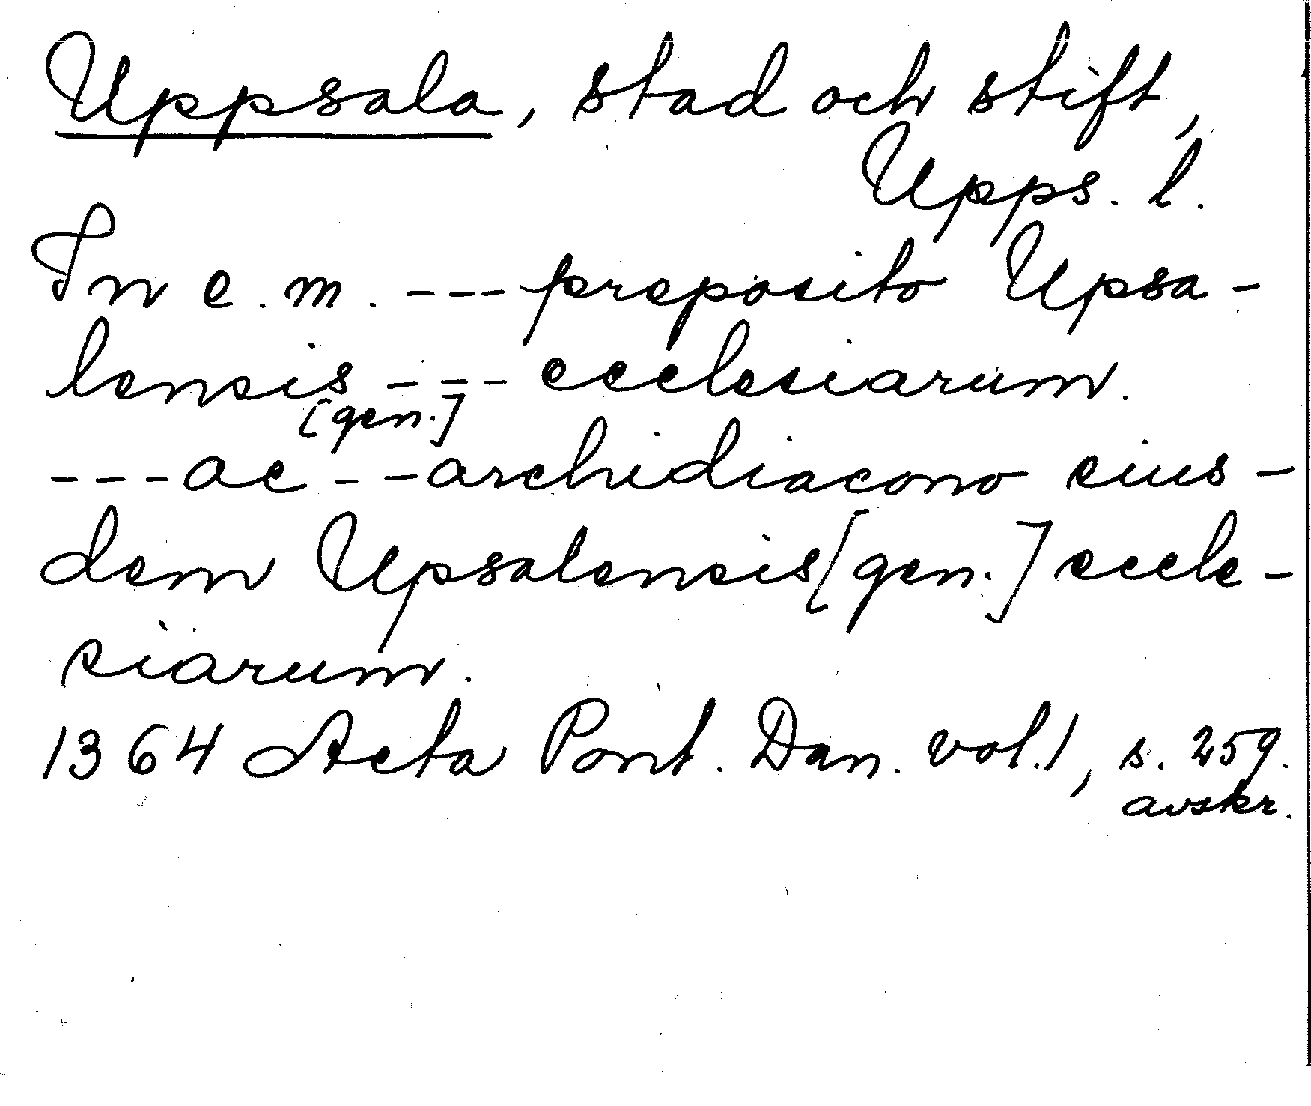 Uppsala, stad och stift,
Upps. l.
In e. m. --- preposito Upsa-
lensis --- ecclesiarum.
[gen.]
---ac --archidiacono eius-
dem Upsalensis [gen.] eccle-
siarum.
1364 Acta Pont. Dan. vol. 1, s. 259.
avskr.